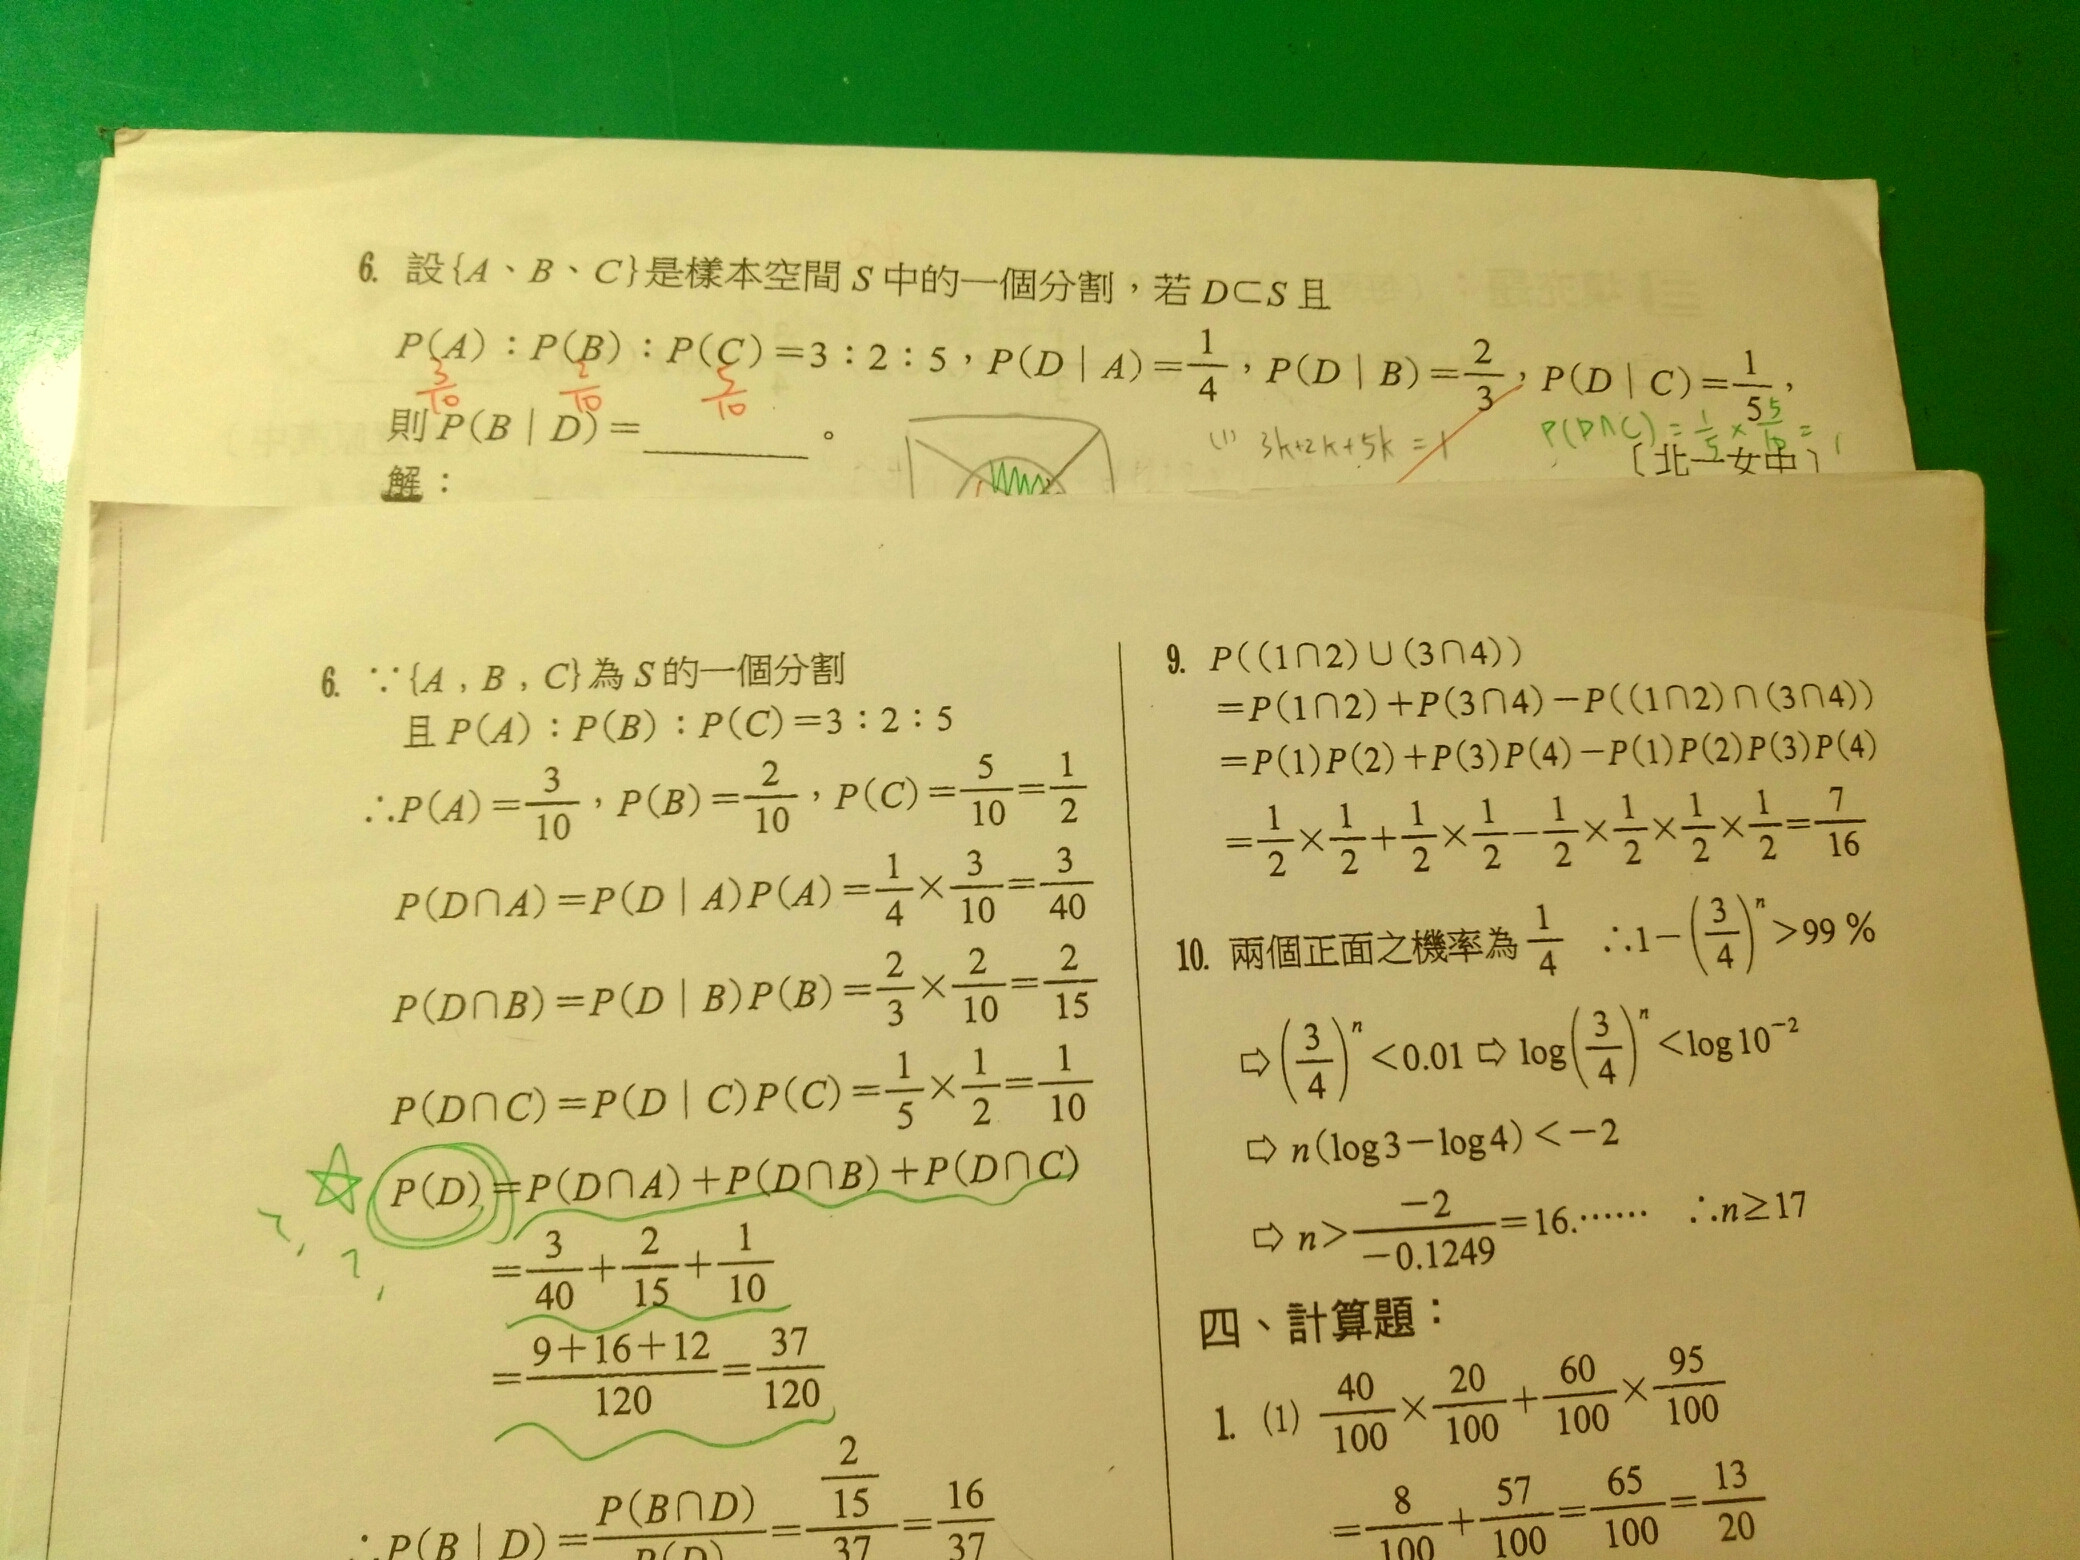 6. 設{A、B、C}是樣本空間 S 中的一個分割，若 D⊂S 且
P(A)：P(B)：P(C)=3：2：5，P(D｜A)=1/4，P(D｜B)=2/3，P(D｜C)=1/5，
3/10 2/10 5/10
則 P(B｜D)=________。
(1) 3k+2k+5k=1
P(D∩C)=1/5×5/10=
〔北一女中〕
解：
6. ∵{A，B，C}為 S 的一個分割
且 P(A)：P(B)：P(C)=3：2：5
∴P(A)=3/10，P(B)=2/10，P(C)=5/10=1/2
P(D∩A)=P(D｜A)P(A)=1/4×3/10=3/40
P(D∩B)=P(D｜B)P(B)=2/3×2/10=2/15
P(D∩C)=P(D｜C)P(C)=1/5×1/2=1/10
P(D)=P(D∩A)+P(D∩B)+P(D∩C)
=3/40+2/15+1/10
=(9+16+12)/120=37/120
∴P(B｜D)=P(B∩D)/P(D)=(2/15)/37=16/37
9. P((1∩2)∪(3∩4))
=P(1∩2)+P(3∩4)−P((1∩2)∩(3∩4))
=P(1)P(2)+P(3)P(4)−P(1)P(2)P(3)P(4)
=1/2×1/2+1/2×1/2−1/2×1/2×1/2×1/2=7/16
10. 兩個正面之機率為1/4 ∴1−(3/4)ⁿ>99％
⇨(3/4)ⁿ<0.01⇨log(3/4)ⁿ<log10⁻²
⇨n(log3−log4)<−2
⇨n>−2/−0.1249=16.…… ∴n≥17
四、計算題：
1. (1) 40/100×20/100+60/100×95/100
=8/100+57/100=65/100=13/20